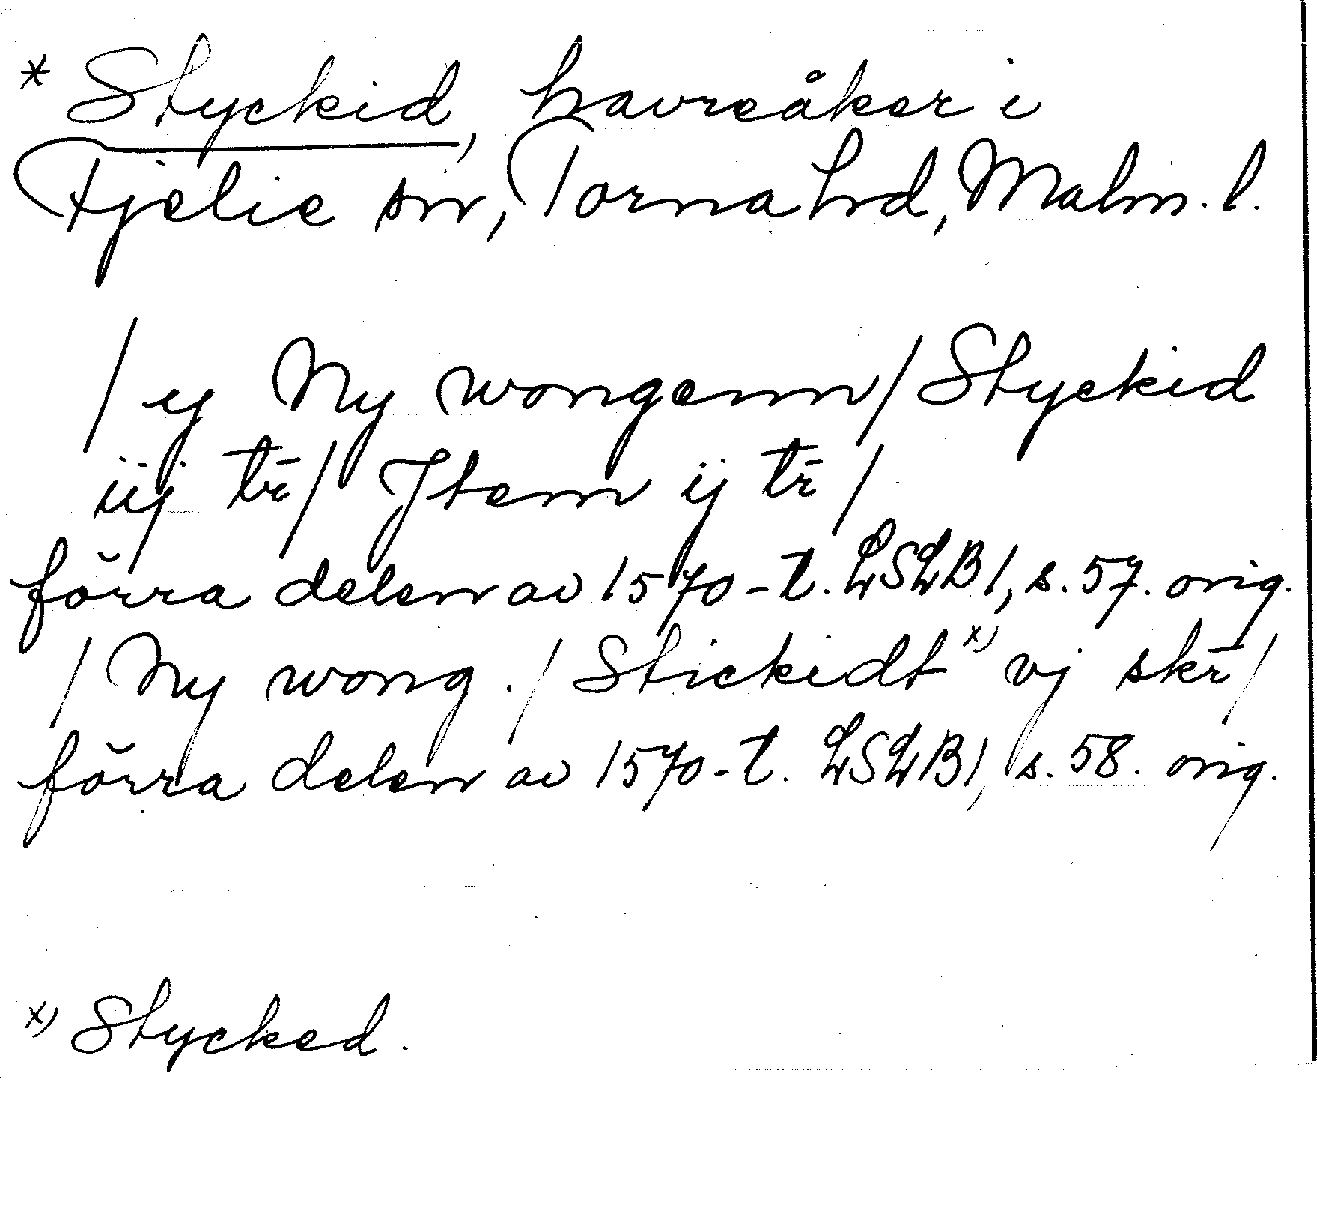 * Styckid, havreåker i
Fjelie sn, Torna hd, Malm. l.
/ ej Ny wongenn / Styckid
iij tr̄ / Jtem ij tr̄ /
förra delen av 1570-t. LSLB1, s. 57. orig.
/ Ny wong. / Stickidt x) vj skr̄ /
förra delen av 1570-t. LSLB1, s. 58. orig.
x) Stycked.